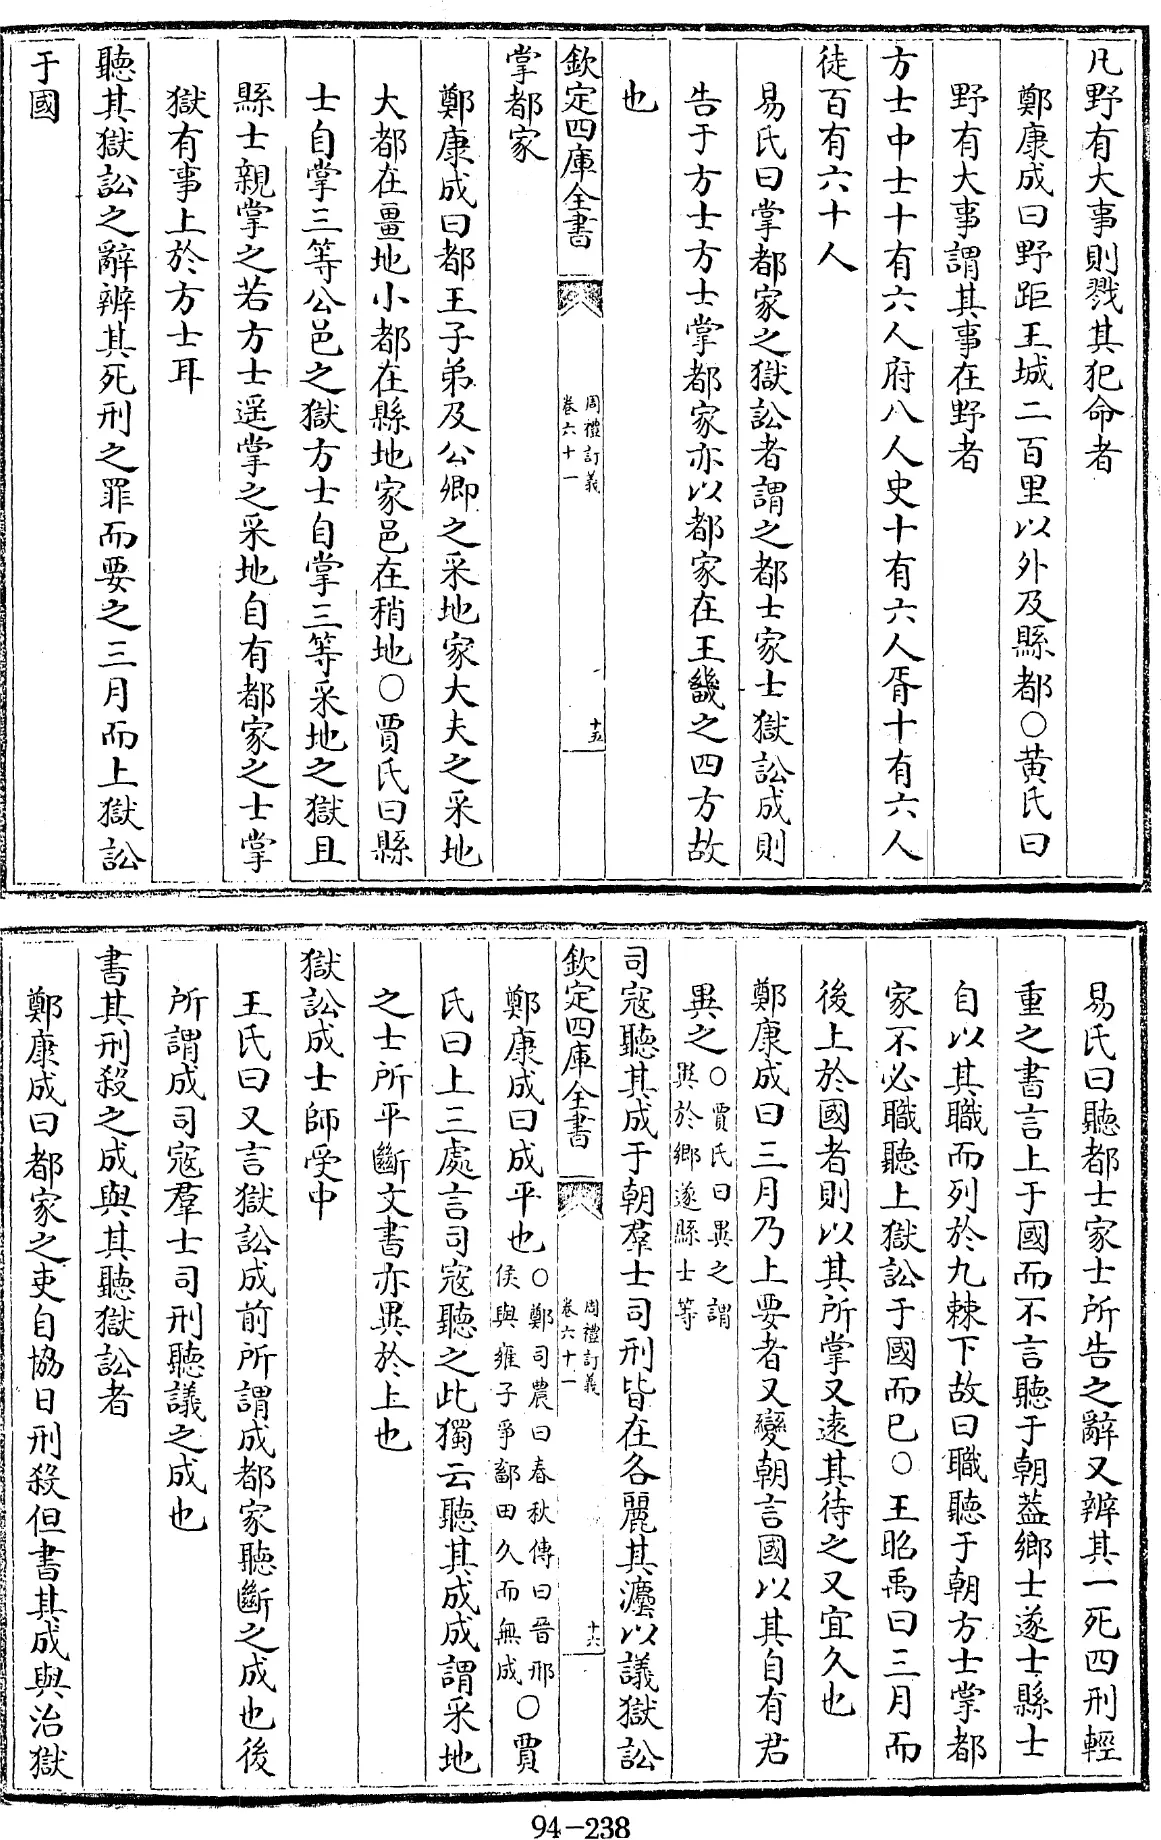 凡野有大事則戮其犯命者
鄭康成曰野距王城二百里以外及縣都○黄氏曰
野有大事謂其事在野者
方士中士十有六人府八人史十有六人胥十有六人
徒百有六十人
易氏曰掌都家之獄訟者謂之都士家士獄訟成則
告于方士方士掌都家亦以都家在王畿之四方故
也
欽定四庫全書
周禮訂義
卷六十一
十五
掌都家
鄭康成曰都王子弟及公卿之采地家大夫之采地
大都在畺地小都在縣地家邑在稍地○賈氏曰縣
士自掌三等公邑之獄方士自掌三等采地之獄且
縣士親掌之若方士遥掌之采地自有都家之士掌
獄有事上於方士耳
聽其獄訟之辭辨其死刑之罪而要之三月而上獄訟
于國
易氏曰聽都士家士所告之辭又辨其一死四刑輕
重之書言上于國而不言聽于朝葢鄉士遂士縣士
自以其職而列於九棘下故曰職聽于朝方士掌都
家不必職聽上獄訟于國而已○王昭禹曰三月而
後上於國者則以其所掌又遠其待之又宜久也
鄭康成曰三月乃上要者又變朝言國以其自有君
異之○賈氏曰異之謂
異於鄉遂縣士等
司寇聽其成于朝羣士司刑皆在各麗其灋以議獄訟
欽定四庫全書
周禮訂義
卷六十一
十六
鄭康成曰成平也○鄭司農曰春秋傳曰晉邢
侯與雍子爭鄐田久而無成○賈
氏曰上三處言司寇聽之此獨云聽其成成謂采地
之士所平斷文書亦異於上也
獄訟成士師受中
王氏曰又言獄訟成前所謂成都家聽斷之成也後
所謂成司寇羣士司刑聽議之成也
書其刑殺之成與其聽獄訟者
鄭康成曰都家之吏自協日刑殺但書其成與治獄
94-238